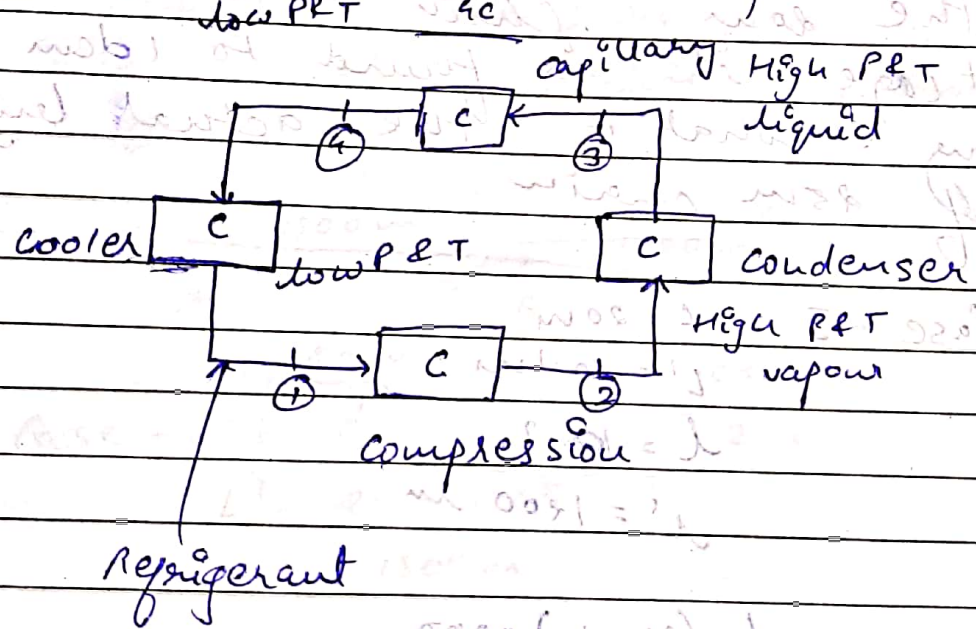 low P&T
capillary High P&T
C liquid
④ ③
C
cooler
low P&T
C
condenser
High P&T
C vapour
① ②
compression
Refrigerant